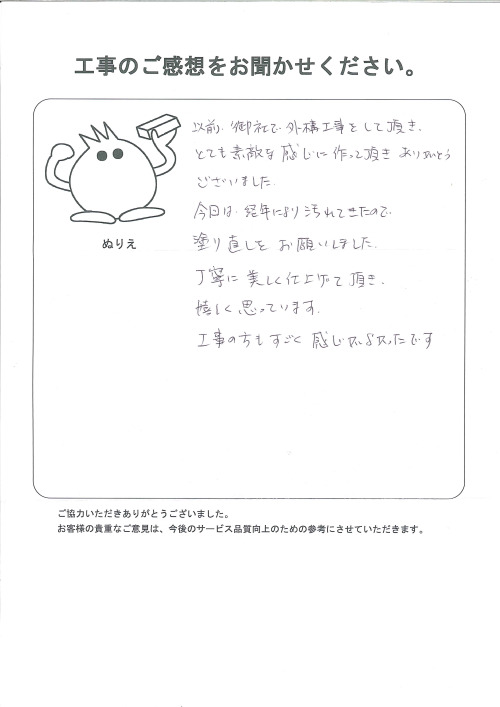 工事のご感想をお聞かせください。
以前、御社で外構工事をして頂き、
とても素敵な感じに作って頂き ありがとう
ございました。
今回は、経年により汚れてきたので、
塗り直しを お願いしました。
丁寧に 美しく仕上げて頂き、
嬉しく 思っています。
工事の方も すごく 感じがよかったです
ぬりえ
ご協力いただきありがとうございました。
お客様の貴重なご意見は、今後のサービス品質向上のための参考にさせていただきます。